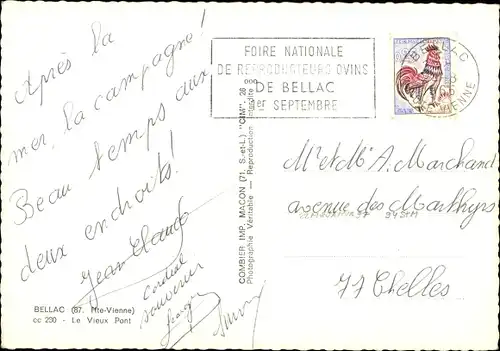 Après la
mer, la campagne!
Beau temps aux
deux endroits!
Jean Claude
Cordial
souvenir
BELLAC (87. Hte-Vienne)
cc 230 - Le Vieux Pont
COMBIER IMP. MACON (71. S.-et-L.) "CIM" 26
Photographie Véritable — Reproduction Interdite
FOIRE NATIONALE
DE REPRODUCTEURS OVINS
DE BELLAC
1er SEPTEMBRE
BELLAC
VIENNE
M. et Mme A. Marchand
avenue des Marthyrs
77 Chelles